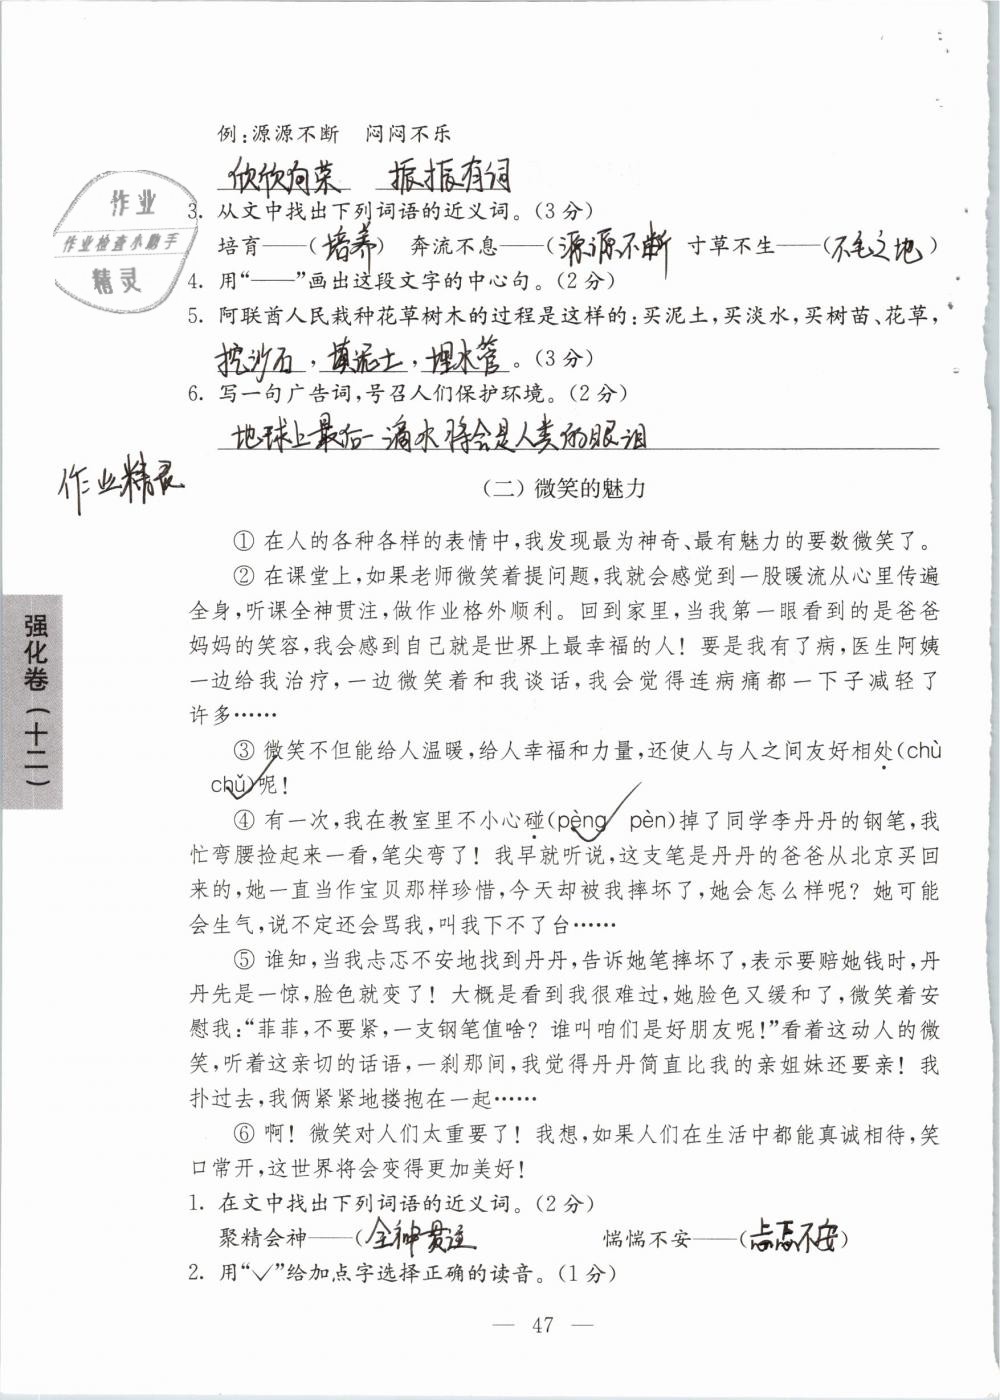 例:源源不断 闷闷不乐
欣欣向荣 振振有词
作业
作业检查小助手
精灵
3. 从文中找出下列词语的近义词。(3分)
培育——(培养) 奔流不息——(源源不断) 寸草不生——(不毛之地)
4. 用“——”画出这段文字的中心句。(2分)
5. 阿联酋人民栽种花草树木的过程是这样的:买泥土,买淡水,买树苗、花草,
挖沙石,填泥土,埋水管。(3分)
6. 写一句广告词,号召人们保护环境。(2分)
地球上最后一滴水将会是人类的眼泪
作业精灵
(二)微笑的魅力
① 在人的各种各样的表情中,我发现最为神奇、最有魅力的要数微笑了。
② 在课堂上,如果老师微笑着提问题,我就会感觉到一股暖流从心里传遍
全身,听课全神贯注,做作业格外顺利。回到家里,当我第一眼看到的是爸爸
妈妈的笑容,我会感到自己就是世界上最幸福的人!要是我有了病,医生阿姨
一边给我治疗,一边微笑着和我谈话,我会觉得连病痛都一下子减轻了
许多……
③ 微笑不但能给人温暖,给人幸福和力量,还使人与人之间友好相处(chù
chǔ)呢!
④ 有一次,我在教室里不小心碰(pèng pèn)掉了同学李丹丹的钢笔,我
忙弯腰捡起来一看,笔尖弯了!我早就听说,这支笔是丹丹的爸爸从北京买回
来的,她一直当作宝贝那样珍惜,今天却被我摔坏了,她会怎么样呢?她可能
会生气,说不定还会骂我,叫我下不了台……
⑤ 谁知,当我忐忑不安地找到丹丹,告诉她笔摔坏了,表示要赔她钱时,丹
丹先是一惊,脸色就变了!大概是看到我很难过,她脸色又缓和了,微笑着安
慰我:“菲菲,不要紧,一支钢笔值啥?谁叫咱们是好朋友呢!”看着这动人的微
笑,听着这亲切的话语,一刹那间,我觉得丹丹简直比我的亲姐妹还要亲!我
扑过去,我俩紧紧地搂抱在一起……
⑥ 啊!微笑对人们太重要了!我想,如果人们在生活中都能真诚相待,笑
口常开,这世界将会变得更加美好!
1. 在文中找出下列词语的近义词。(2分)
聚精会神——(全神贯注) 惴惴不安——(忐忑不安)
2. 用“✓”给加点字选择正确的读音。(1分)
强化卷(十二)
— 47 —